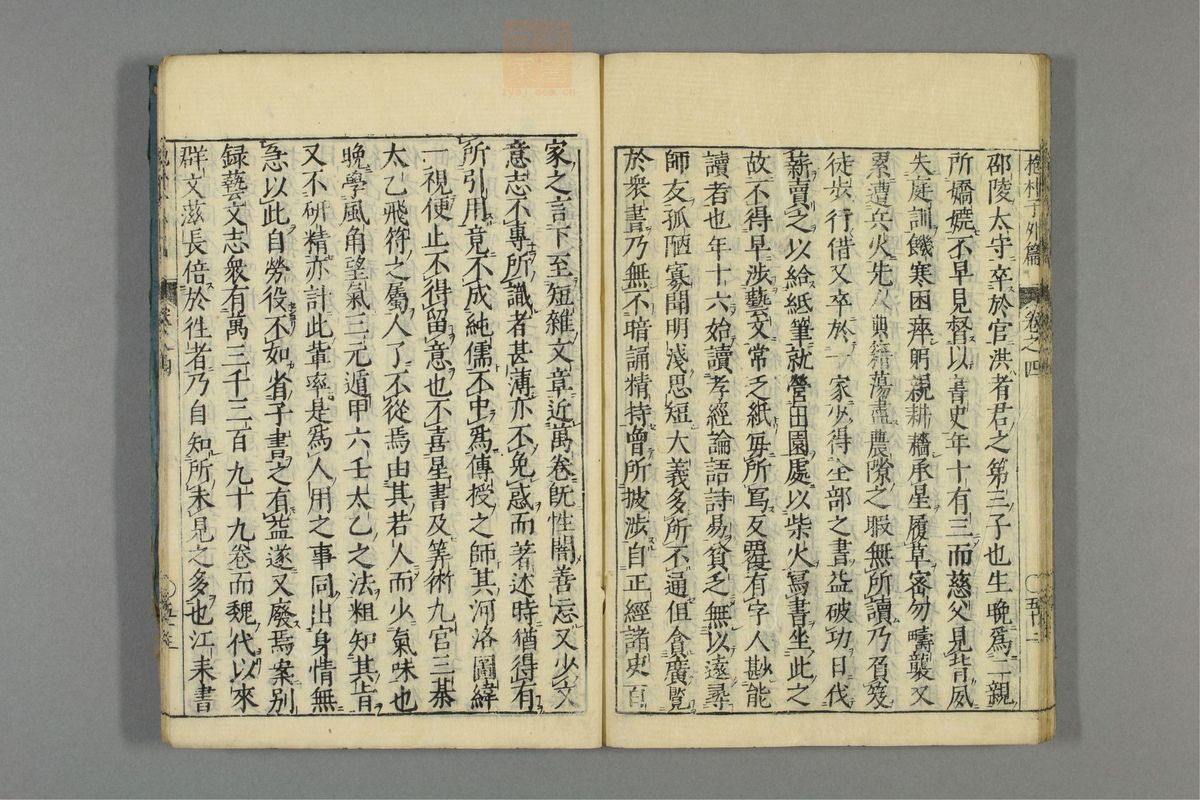 抱朴子外篇 卷之四 五十二
邵陵太守卒於官洪者君之第三子也生晚爲二親
所嬌嬈不早見督以書史年十有三而慈父見背夙
失庭訓饑寒困瘁躬親耕穡承星履草密勿疇襲又
累遭兵火先人典籍蕩盡農隙之暇無所讀乃負笈
徒步行借又卒於一家少得全部之書益破功日伐
薪賣之以給紙筆就營田園處以柴火寫書坐此之
故不得早涉藝文常乏紙每所寫反覆有字人尠能
讀者也年十六始讀孝經論語詩易貧乏無以遠尋
師友孤陋寡聞明淺思短大義多所不通但貪廣覽
於衆書乃無不暗誦精持曾所披涉自正經諸史百
家之言下至短雜文章近萬卷既性闇善忘又少文
意志不專所識者甚薄亦不免惑而著述時猶得有
所引用竟不成純儒不中爲傳授之師其河洛圖緯
一視便止不得留意也不喜星書及筭術九宮三棊
太乙飛符之屬人了不從焉由其若人而少氣味也
晚學風角望氣三元遁甲六壬太乙之法粗知其旨
又不研精亦計此輩率是爲人用之事同出身情無
急以此自勞役不如省子書之有益遂又廢焉案别
録藝文志衆有萬三千二百九十九卷而魏代以來
群文滋長倍於徃者乃自知所未見之多也江表書